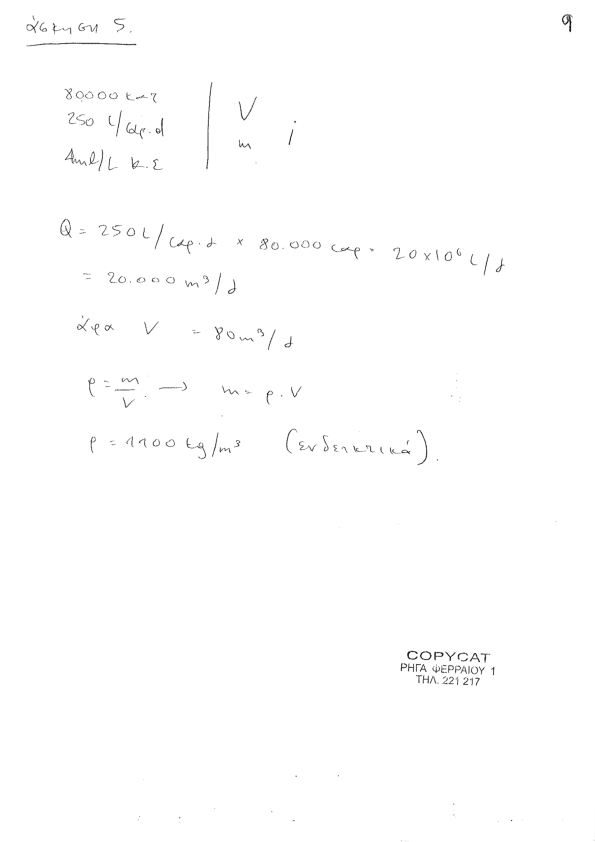 άσκηση 5.
9
80000 κατ
250 L/cap.d
4ml/L κ.ε
V
m
i
Q = 250L/cap.d × 80.000 cap = 20×10⁶ L/d
= 20.000 m³/d
άρα V = 80m³/d
ρ = m/V. → m = ρ.V
ρ = 1100 kg/m³ (ενδεικτικά).
COPYCAT
ΡΗΓΑ ΦΕΡΡΑΙΟΥ 1
ΤΗΛ. 221 217